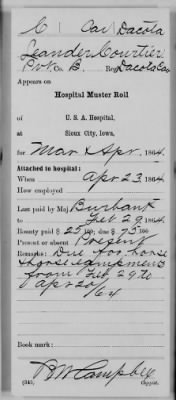 C | Cav | Dacota
Leander Courtier
Pvt, Co. B, Reg. Dacota Cav
Appears on
Hospital Muster Roll
of
U. S. A. Hospital,
Sioux City, Iowa,
for Mar & Apr, 1864.
Attached to hospital:
When Apr 23, 1864
How employed
Last paid by Maj. Burbank
to Feb 29, 1864
Bounty paid $25 100; due $75 100
Present or absent Present
Remarks: Due for horse
& horse equipments
from Feb 29 to
Apr 20/64
Book mark:
Copyist.